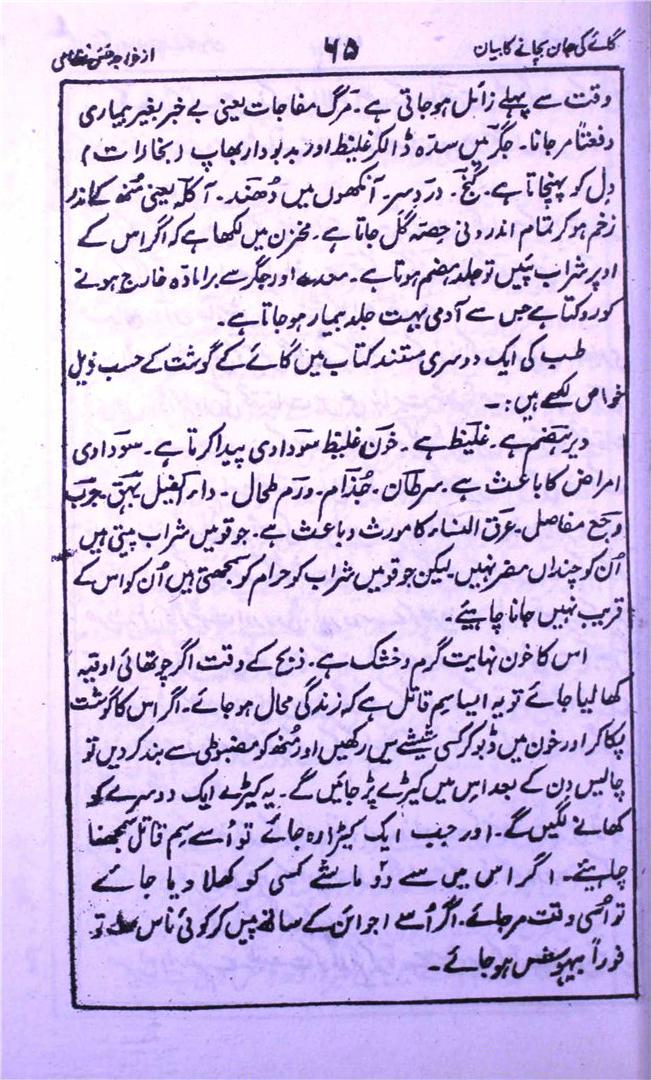 گائے کی جان بچانے کا بیان ۶۵ از خواجہ حسن نظامی
وقت سے پہلے زائل ہو جاتی ہے۔ مرگ مفاجات یعنی بے خبر بغیر بیماری
دفعتاً مر جانا۔ جگر میں سدہ ڈالکر غلیظ اور بدبودار بھاپ (بخارات)
دل کو پہنچاتا ہے۔ گنج۔ درد سر۔ آنکھوں میں دُھند۔ آکلہ یعنی مُنھ کے اندر
زخم ہو کر تمام اندرونی حصّہ گل جاتا ہے۔ مخزن میں لکھا ہے کہ اگر اس کے
اوپر شراب پئیں تو جلد ہضم ہوتا ہے۔ معدہ اور جگر سے برا مادہ خارج ہونے
کو روکتا ہے جس سے آدمی بہت جلد بیمار ہو جاتا ہے۔
طب کی ایک دوسری مستند کتاب میں گائے کے گوشت کے حسب ذیل
خواص لکھے ہیں:۔
دیر ہضم ہے۔ غلیظ ہے۔ خون غلیظ سوداوی پیدا کرتا ہے۔ سوداوی
امراض کا باعث ہے۔ سرطان۔ جُذام۔ ورم طحال۔ داء الفیل بہق۔ جرب
وجع مفاصل۔ عرق النساء کا مورث و باعث ہے۔ جو قومیں شراب پیتی ہیں
اُن کو چنداں مضر نہیں۔ لیکن جو قومیں شراب کو حرام کو سمجھتی ہیں اُن کو اس کے
قریب نہیں جانا چاہیئے۔
اس کا خون نہایت گرم و خشک ہے۔ ذبح کے وقت اگر چوتھائی اوقیہ
کھا لیا جائے تو یہ ایسا سم قاتل ہے کہ زندگی محال ہو جائے۔ اگر اس کا گوشت
پکا کر اور خون میں ڈبو کر کسی شیشے میں رکھیں اور مُنھ کو مضبوطی سے بند کر دیں تو
چالیس دن کے بعد اس میں کیڑے پڑ جائیں گے۔ یہ کیڑے ایک دوسرے کو
کھانے لگیں گے۔ اور جب ایک کیڑا رہ جائے تو اُسے سم قاتل سمجھنا
چاہیئے۔ اگر اس میں سے دو ماشے کسی کو کھلا دیا جائے
تو اسی وقت مر جائے۔ اگر اُسے اجوائن کے ساتھ پیس کر کوئی ناس لے تو
فوراً بیہوش ہو جائے۔